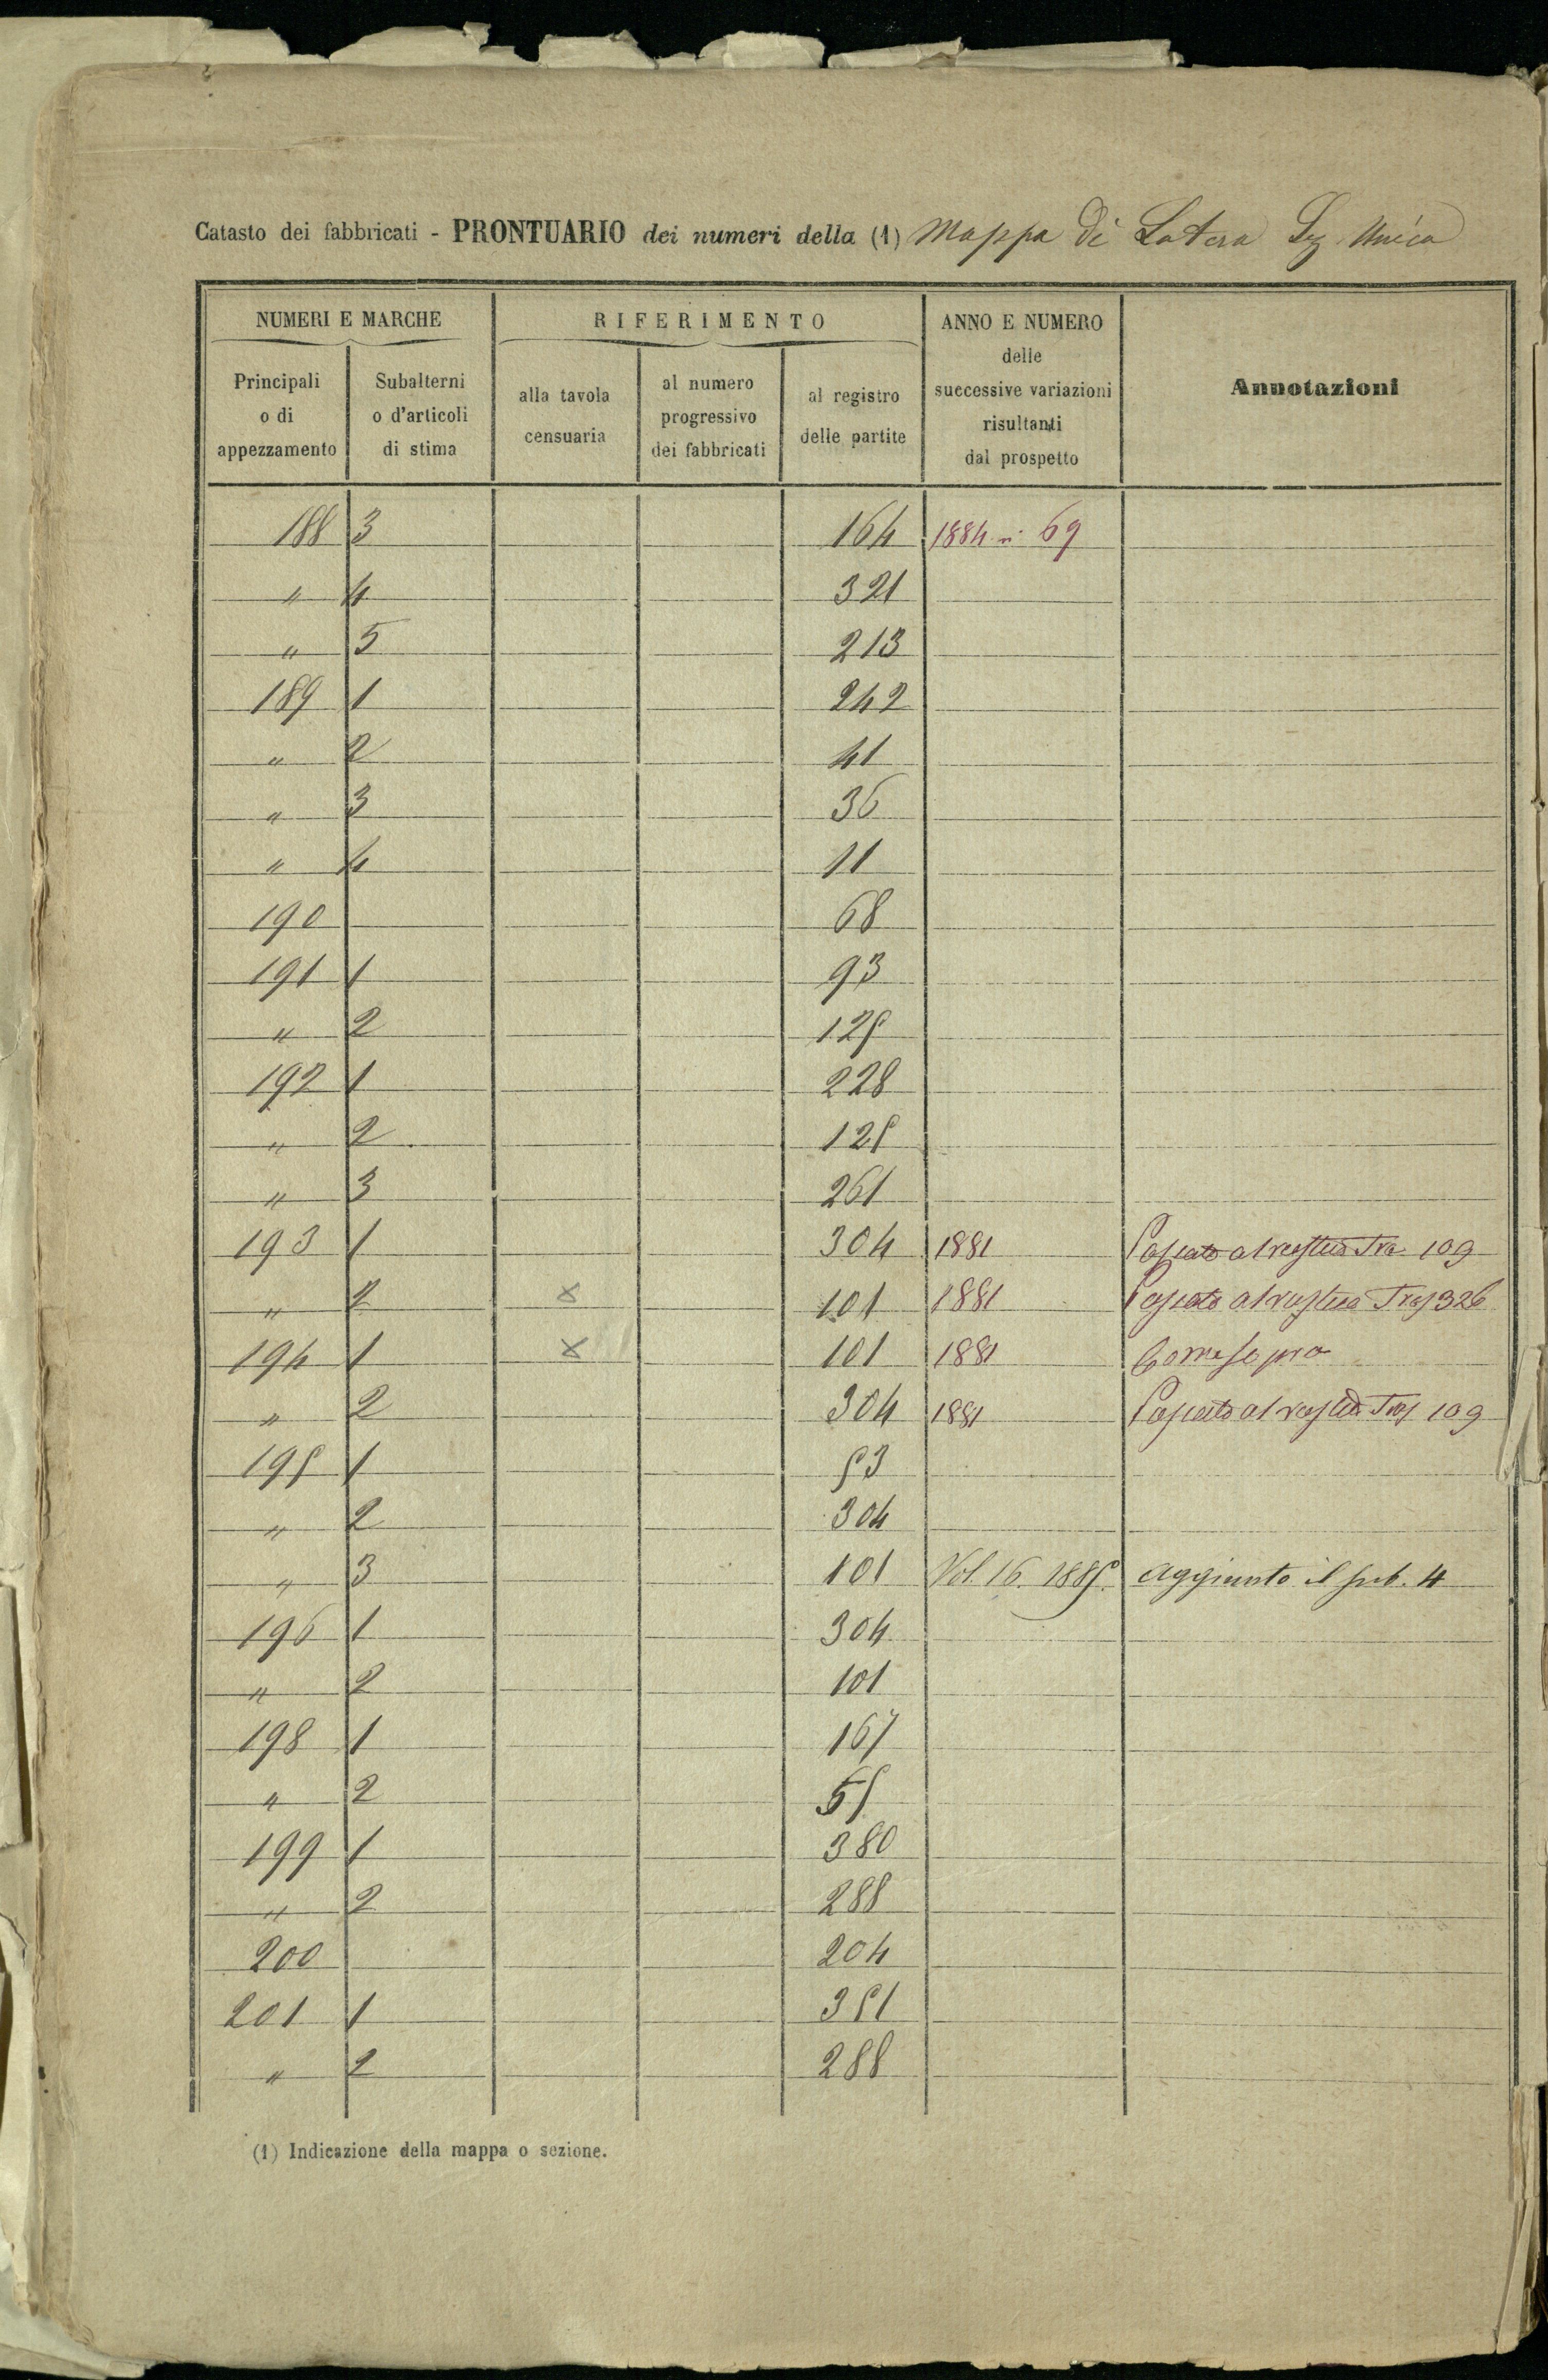 Catasto dei fabbricati - PRONTUARIO dei numeri della (1) Mappa di Latera Sez Unica
NUMERI E MARCHE RIFERIMENTO ANNO E NUMERO delle successive variazioni risultanti dal prospetto Annotazioni
Principali o di appezzamento Subalterni o d'articoli di stima alla tavola censuaria al numero progressivo dei fabbricati al registro delle partite
188 3 164 1884 n. 69
" 4 321
" 5 213
189 1 242
" 2 41
" 3 36
" 4 11
190 68
191 1 93
" 2 125
192 1 228
" 2 125
" 3 261
193 1 304 1881 Passato al rustico Tras 109
" 2 x 101 1881 Passato al rustico Tras 326
194 1 x 101 1881 Come sopra
" 2 304 1881 Passato al rustico Tras 109
195 1 53
" 2 304
" 3 101 Vol. 16. 1885. aggiunto il sub. 4
196 1 304
" 2 101
198 1 167
" 2 55
199 1 380
" 2 288
200 204
201 1 351
" 2 288
(1) Indicazione della mappa o sezione.